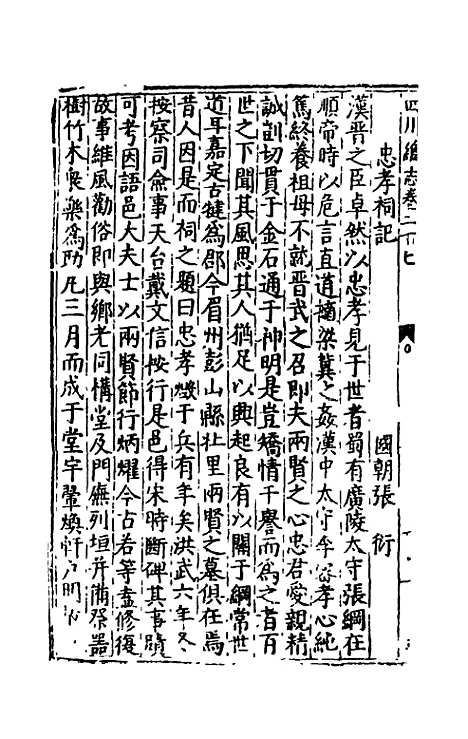 四川總志卷二十七
忠孝祠記　國朝張　衍
漢晉之臣卓然以忠孝見于世者蜀有廣陵太守張綱在
順帝時以危言直道摘梁冀之姦漢中太守李密孝心純
篤終養祖母不就晉武之召即夫兩賢之心忠君愛親精
誠剴切貫于金石通于神明是豈矯情干譽而為之者百
世之下聞其風思其人猶足以興起良有以關于綱常世
道耳嘉定古犍為郡今眉州彭山縣北里兩賢之墓俱在焉
昔人因是而祠之題曰忠孝燬于兵有年矣洪武六年冬
按察司僉事天台戴文信按行是邑得宋時斷碑其事蹟
可考因語邑大夫士以兩賢節行炳耀今古若等盍修復
故事維風勸俗即與鄉老同構堂及門廡列垣井甫祭器
樹竹木奐樂為助凡三月而成于堂宇翬煥軒戶明